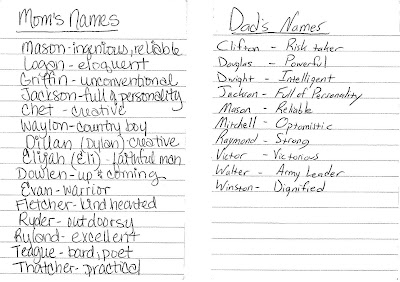 Mom's Names
Mason-ingenious, reliable
Logan-eloquent
Griffin-unconventional
Jackson-full of personality
Chet-creative
Waylon-country boy
Dillan (Dylan) creative
Elijah (Eli)-faithful man
Dowlen-up & coming
Evan-warrior
Fletcher-kind hearted
Ryder-outdoorsy
Ryland-excellent
Teague-bard, poet
Thatcher-practical
Dad's Names
Clifton - Risk taker
Douglas - Powerful
Dwight - Intelligent
Jackson - Full of Personality
Mason - Reliable
Mitchell - Optomistic
Raymond - Strong
Victor - Victorious
Walter - Army Leader
Winston - Dignified